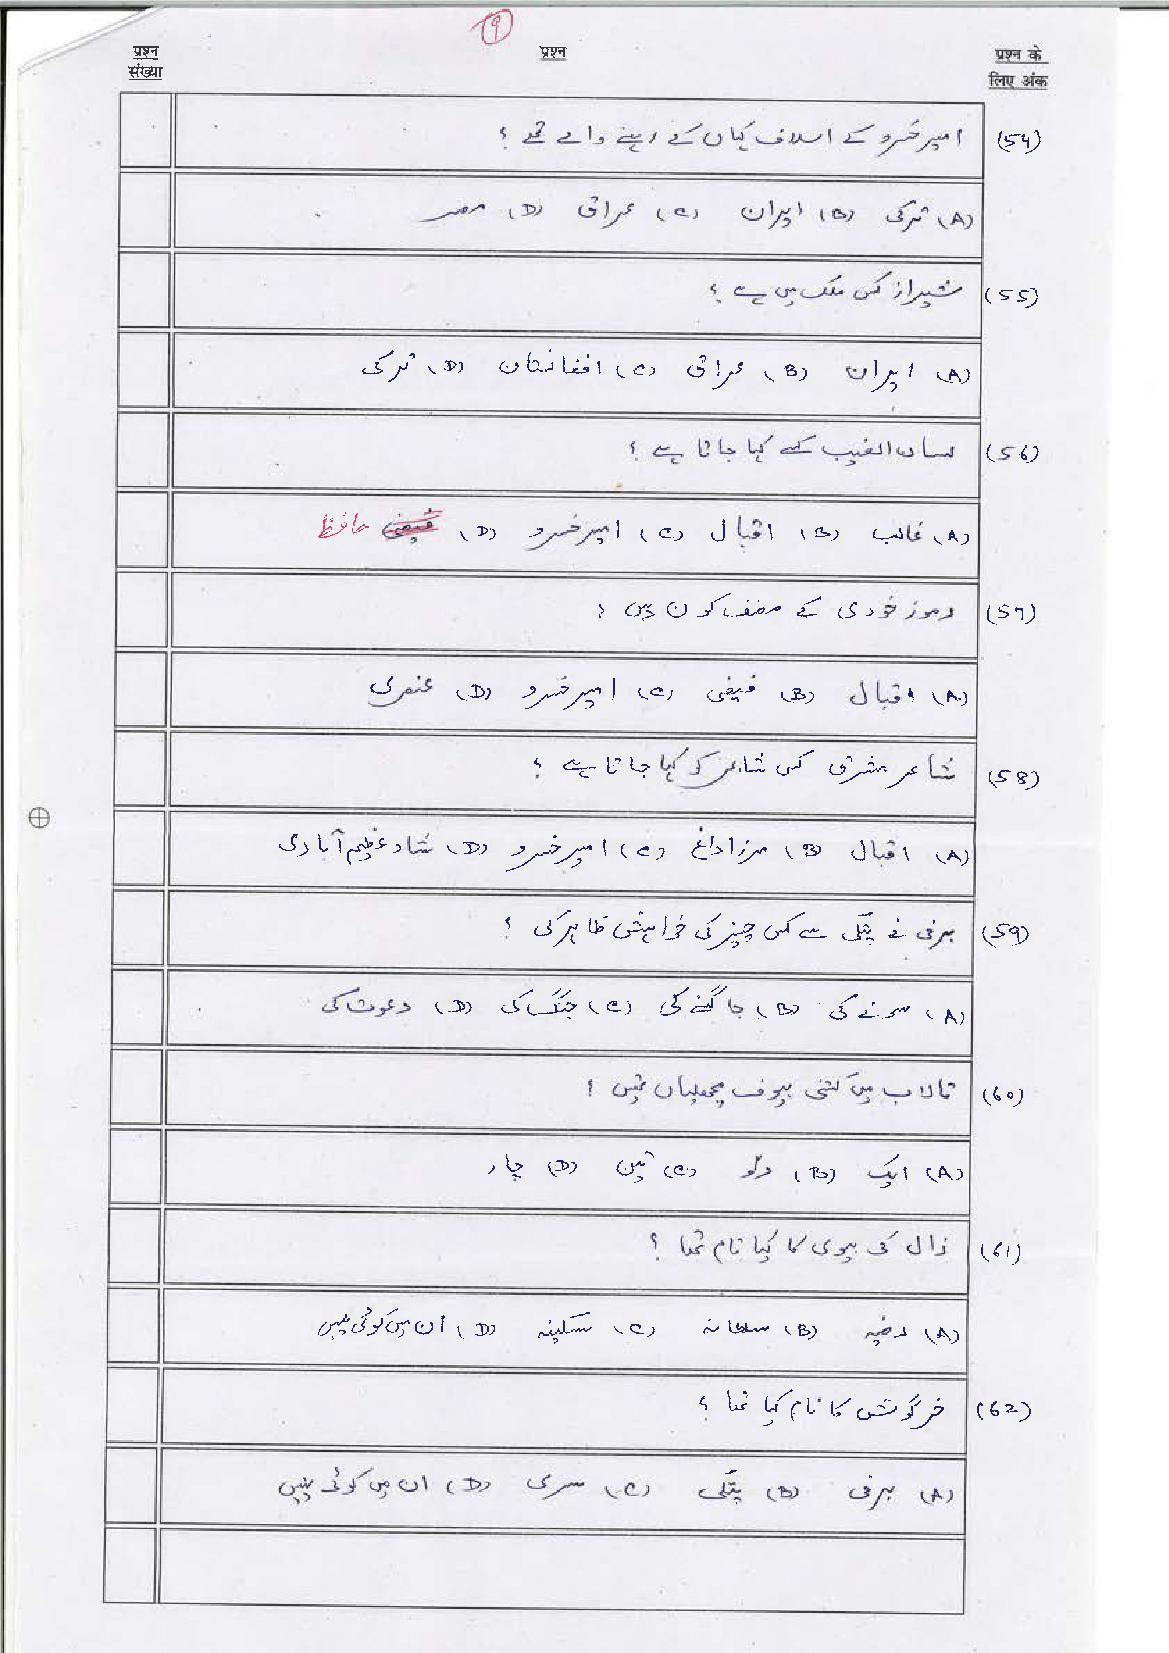 ۹
प्रश्न संख्या
प्रश्न
प्रश्न के लिए अंक
(54) امیر خسرو کے اسلاف کہاں کے رہنے والے تھے ؟
(A) ترکی (B) ایران (C) عراق (D) مصر
(55) شیراز کس ملک میں ہے ؟
(A) ایران (B) عراق (C) افغانستان (D) ترکی
(56) لسان الغیب کسے کہا جاتا ہے ؟
(A) غالب (B) اقبال (C) امیر خسرو (D) فیضی حافظ
(57) رموز خودی کے مصنف کون ہیں ؟
(A) اقبال (B) فیضی (C) امیر خسرو (D) عنصری
(58) شاعر مشرق کس شاعر کو کہا جاتا ہے ؟
(A) اقبال (B) مرزا داغ (C) امیر خسرو (D) شاد عظیم آبادی
(59) برفی نے پنکی سے کس چیز کی خواہش ظاہر کی ؟
(A) سونے کی (B) جاگنے کی (C) جنگ کی (D) دعوت کی
(60) تالاب میں کتنی بیوقوف مچھلیاں تھیں ؟
(A) ایک (B) دو (C) تین (D) چار
(61) زال کی بیوی کا کیا نام تھا ؟
(A) رضیہ (B) سلطانہ (C) سکینہ (D) ان میں کوئی نہیں
(62) خرگوش کا نام کیا تھا ؟
(A) برفی (B) پنکی (C) سری (D) ان میں کوئی نہیں